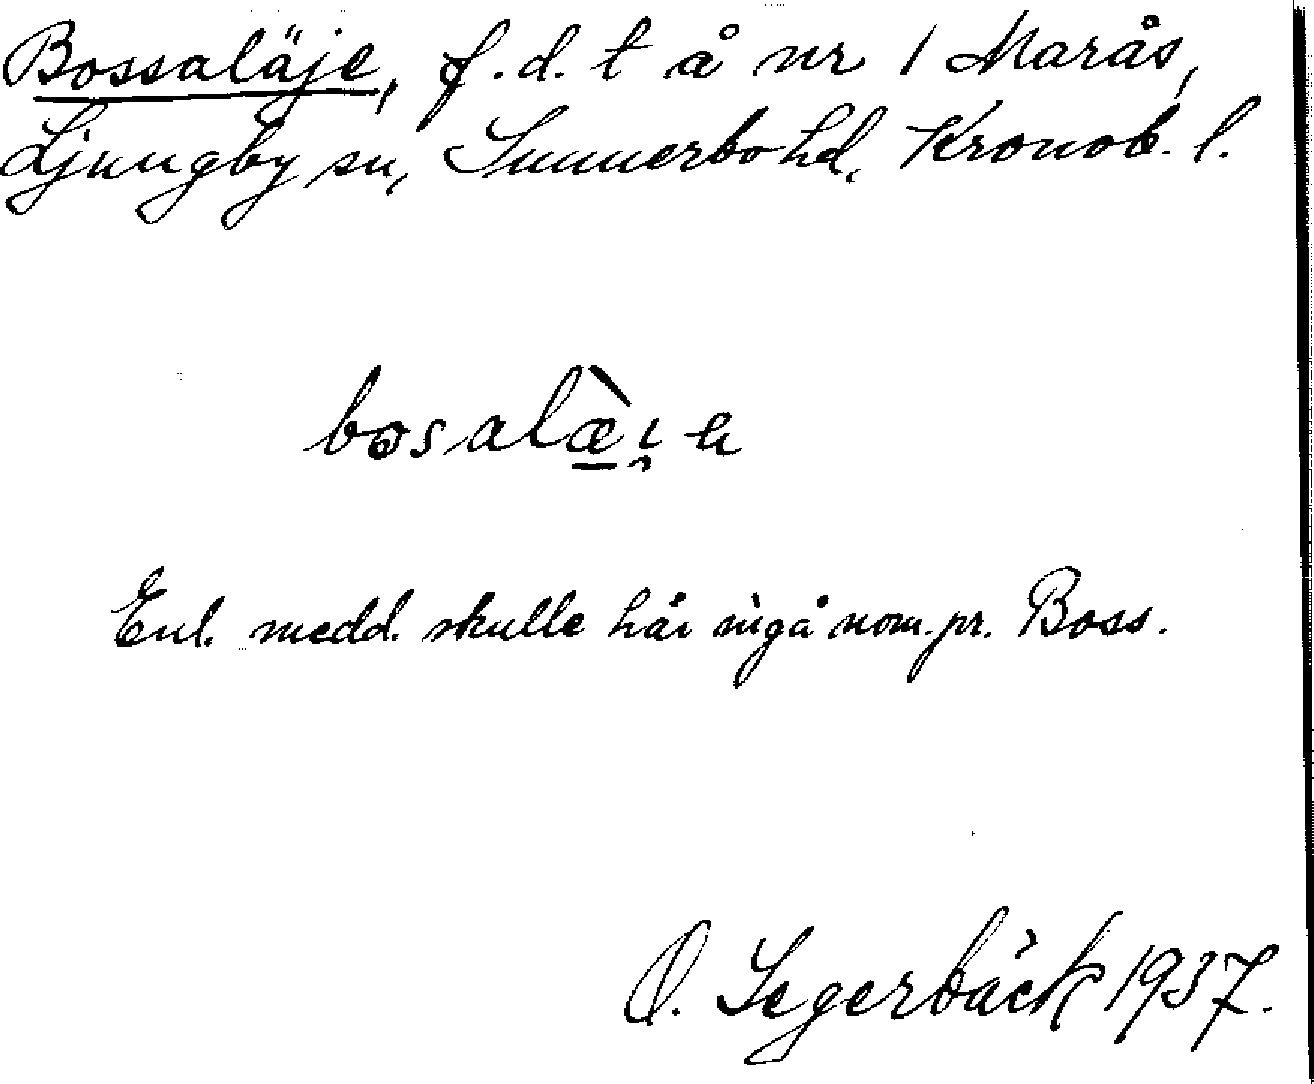 Bossaläje, f.d. t å nr 1 Marås,
Ljungby sn, Sunnerbo hd, Kronob. l.
Enl. medd. skulle här ingå nom. pr. Boss.
O. Segerbäck 1937.